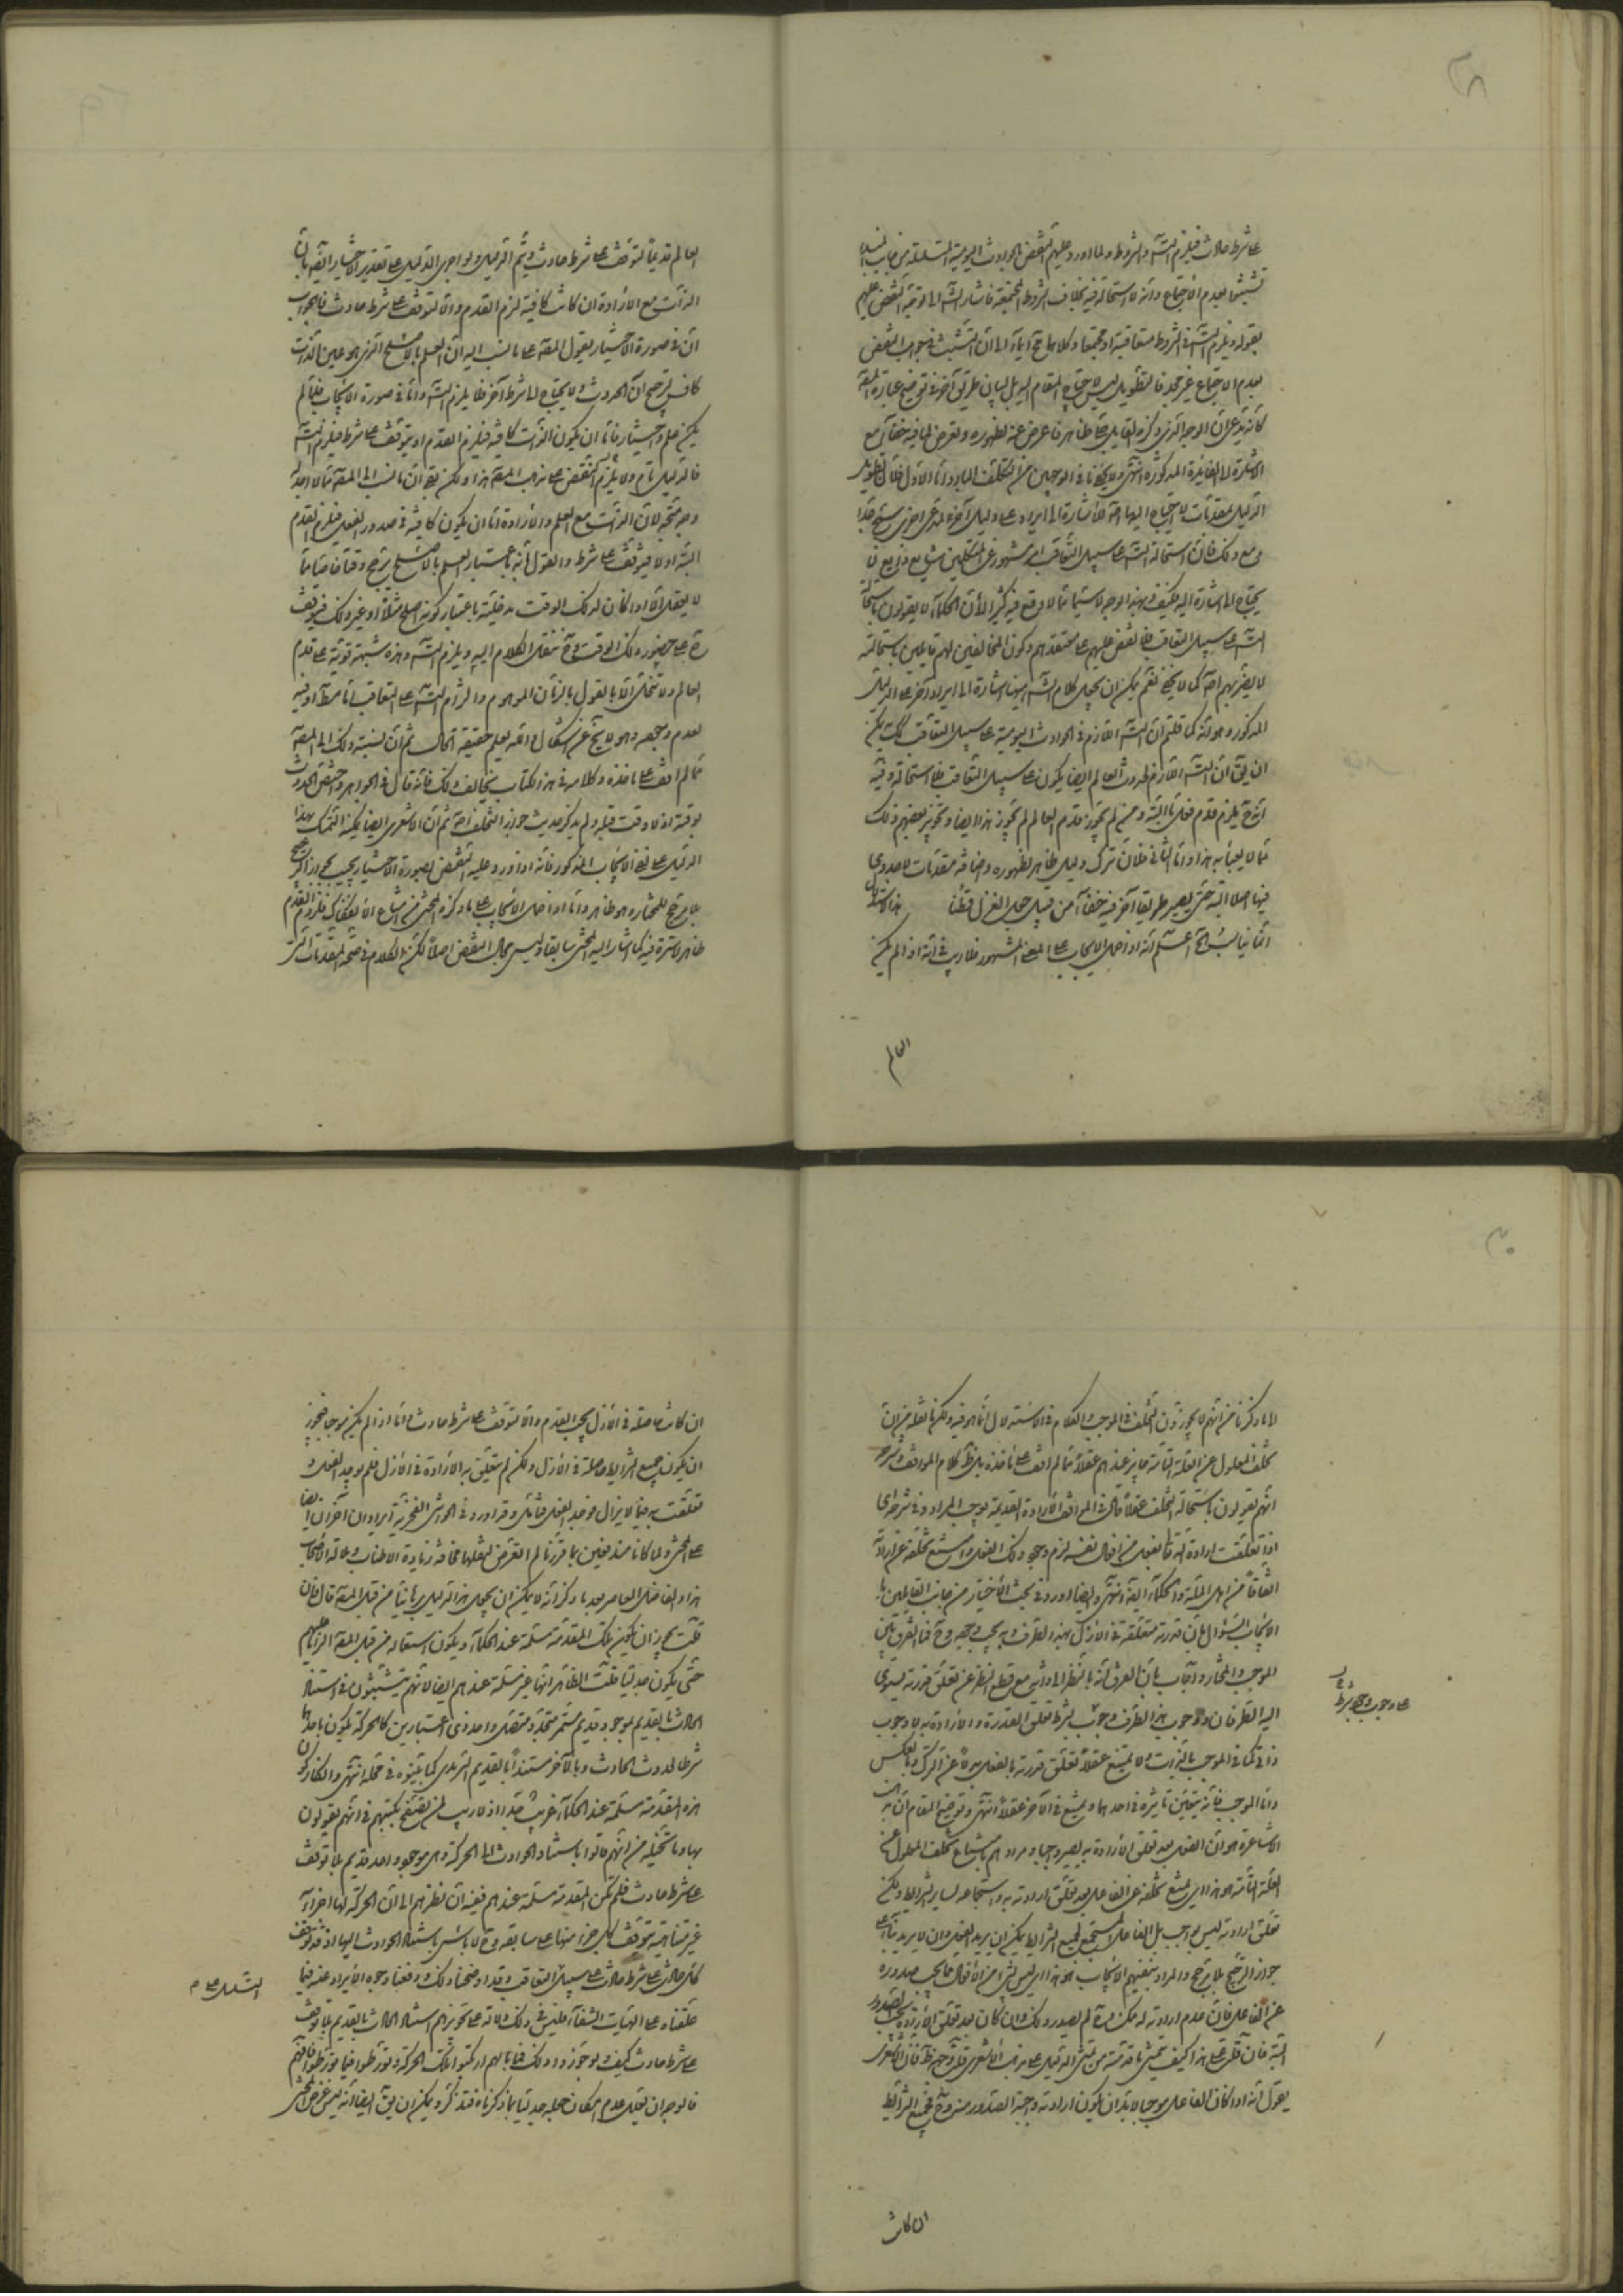 ٢٨
على شرط حادث فيلزم التسـ والشروط ولما اورد عليهم النقض بالحوادث اليومية المتسلسلة من جانب المبدأ
تشبثوا بعدم الاجتماع وانه لا استحالة فيه بخلاف الشروط المجتمعة فاشار الشـ الى توجيه النقض عليهم
بقوله ويلزم التسـ في الشروط متعاقبة او مجتمعة وكلاهما مح ايماء الى ان التشبث في جواب النقض
بعدم الاجتماع غير مجد فالتطويل ليس لاحتياج المقام اليه بل لبيان طريق آخر في توضيح عبارة المصـ
كانه يدعى ان الوجه الذي ذكره القائل ظاهر فاعرض عنه لظهوره وتعرض لما فيه خفاء مع
الاشارة الى الفايدة المذكورة انتهى ولا يخفى ما في الوجهين من التكلف البارد اما الاول فلان تطويل
الدليل بمقدمات لا احتياج اليها اصلا للاشارة الى ايراد على دليل آخر لمدعى آخر سمج جدا
ومع ذلك فان استحالة التسـ على سبيل التعاقب امر مشهور عن المتكلمين شايع وذايع لا
يحتاج الى الاشارة اليه فكيف بهذا الوجه لا سيما مما لا وقع فيه كثيرا لان الحكماء لا يقولون باستحالة
التسـ على سبيل التعاقب فلا نقض عليهم على معتقدهم وكون المخالفين لهم قايلين باستحالته
لا يضر بهم اصلا كما لا يخفى نعم يمكن ان يجعل كلام الشـ ههنا اشارة الى ايراد آخر على الدليل
المذكور وهو انه كما قلتم ان التسـ اللازم في الحوادث اليومية على سبيل التعاقب كك يمكن
ان يق ان التسـ اللازم لحدوث العالم ايضا يكون على سبيل التعاقب فلا استحالة وفيه
انه ح يلزم قدم فعل ما البتة ومن لم يجوز قدم العالم لم يجوز هذا ايضا وتجويز بعضهم ذلك
مما لا يعبأ به هذا واما الثاني فلان ترك دليل ظاهر لظهوره واضافة مقدمات لا جدوى
فيها اصلا اليه حتى يصير طريقا آخر فيه خفاء من قبيل حمل الغزل قطنا
انما يناسب الخ اعلم انه اذا حمل الايجاب على المعنى المشهور فلا ريب في انه اذا لم يكن
العالم
العالم قديماً لتوقف على شرط حادث ويتم الدليل ولو اجرى الدليل على تقدير الاختيار ايضا بان
الذات مع الارادة ان كانت كافية لزم القدم والا لتوقف على شرط حادث فالجواب
ان في صورة الاختيار يقول المصـ على ما نسب اليه ان العلم بالاصلح الذي هو عين الذات
كاف لترجيح ان الحدوث ولا يحتاج الى شرط آخر فلا يلزم التسـ واما في صورة الايجاب فلما لم
يكن علم واختيار فاما ان يكون الذات كافية فيلزم القدم او يتوقف على شرط فيلزم التسـ
فالدليل تام ولا يلزم النقض على مذهب المصـ هذا ولكن يق ان ما نسب الى المصـ مما لا اجد له
وجه صحة لان الذات مع العلم والارادة اما ان يكون كافية في صدور الفعل فيلزم القدم
البتة او لا فيتوقف على شرط والقول بانه باعتبار العلم بالاصلح يرجح وقتا خاصا مما
لا يعقل الا اذا كان لذلك الوقت مدخلية باعتبار كونه اصلح مثلا او غير ذلك فيتوقف
ح على حضور ذلك الوقت وح ننقل الكلام اليه ويلزم التسـ وهذه شبهة قوية على قدم
العالم ولا تنحل الا بالقول بالزمان الموهوم والتزام التسـ على التعاقب اما مطلقا او فيه
بعدم وجعه وهو لا يخ عن اشكال والله يعلم حقيقة الحال ثم ان نسبة ذلك الى المصـ
مما لم اقف على ماخذه وكلامه في هذا الكتاب يخالف ذلك فانه قال في الجواهر واختص الحدوث
بوقته اذ لا وقت قبله ولم يذكر حديث جواز التخلف اصلا ثم ان الاشعري ايضا يمكنه التمسك بهذا
الدليل على نفي الايجاب المذكور فانه اذا اورد عليه النقض بصورة الاختيار يجيب بجواز الترجيح
بلا مرجح للمختار وهو ظاهر واما اذا حمل الايجاب على ما ذكره المحشي من امتناع الانفكاك فلزوم القدم
ظاهر لا سترة فيه كما اشار اليه المحشي سابقا وليس مجال النقض اصلا لكن الكلام في صحة المقدمات التي
٣٠
لما ذكرنا من انهم لا يجوزون التخلف في الموجب والكلام في الاستدلال انما هو فيه ولكن ما نقله من ان
تخلف المعلول عن العلة التامة جايز عندهم عقلا مما لم اقف على ماخذه بل نظر كلام المواقف وشرحه
انهم يقولون باستحالة التخلف عقلا قال في المواقف الارادة القديمة توجب المراد وفي شرحه اي
اذا تعلقت ارادة الله تعـ بفعل من افعال نفسه لزم وجود ذلك الفعل وامتنع تخلفه عن ارادته
اتفاقا من اهل الملة والحكماء ايضا انتهى وايضا اورد في بحث الاختيار من جانب القايلين با
لايجاب السؤال بان قدرته متعلقة في الازل بهذا الطرف وبه يجب وجوده وح فما الفرق بين
الموجب والمختار واجاب بان الفرق انه بالنظر الى ذاته مع قطع النظر عن تعلق قدرته يستوي
اليه الطرفان ووجوب هذا الطرف وجوب بشرط تعلق القدرة والارادة به لا وجوب
ذاتي كما في الموجب بالذات ولا يمتنع عقلا تعلق قدرته بالفعل بدلا عن الترك وبالعكس
واما الموجب فانه يتعين تاثيره في احدهما ويمتنع في الآخر عقلا انتهى وتوضيح المقام ان مذهب
الاشاعرة هو ان الفعل بعد تعلق الارادة به يصير واجبا ومرادهم بامتناع تخلف المعلول عن
العلة التامة هو هذا اي يمتنع تخلفه عن الفاعل بعد تعلق ارادته به واستجماعه لساير الشرايط ولكن
تعلق ارادته ليس بواجب بل الفاعل المستجمع لجميع الشرايط يمكن ان يريد الفعل وان لا يريد بناء على
جواز الترجيح بلا مرجح والمراد بنفيهم الايجاب هو هذا اي ليس شئ من الافعال مما يجب صدوره
عن الفاعل فان عدم ارادته له ممكن ولو لم يصدر ذلك وان كان بعد تعلق الارادة يجب الصدور
البتة فان قلت على هذا كيف يتمشى ما قدمته من تمشي الدليل على مذهب الاشعري قلت وجهه ظ فان الاشعري
يقول انه اذا كان الفاعل موجبا لا بد ان يكون ارادته واجبة الصدور منه وح فجميع الشرائط
على وجوب وجوده بشرط
ان كانت
ان كانت حاصلة في الازل يجب القدم والا لتوقف على شرط حادث واما اذا لم يكن موجبا فيجوز
ان يكون جميع الشرايط حاصلة في الازل ولكن لم يتعلق به الارادة في الازل فلم يوجد الفعل و
تعلقت به فيما لا يزال فوجد الفعل فتامل وقد اورد في الحواشي الفخرية ايرادان آخران ايضا
على المحشي ولما كانا مندفعين بما قررنا لم نتعرض لنقلهما مخافة زيادة الاطناب وملالة الاصحاب
هذا والفاضل المعاصر بعد ما ذكر انه لا يمكن ان يجعل هذا الدليل برهانيا من قبل المصـ قال فان
قلت يجوز ان يكون تلك المقدمة مسلمة عند الحكماء ويكون استعماله من قبل المصـ الزاما عليهم
حتى يكون جدليا قلت الظاهر انها غير مسلمة عندهم ايضا لانهم يتشبثون في استناد
الحادث بالقديم بوجود قديم مستمر متجدد متصل واحد ذي اعتبارين كالحركة ليكون باحدهما
شرطا لحدوث الحادث وبالآخر مستندا بالقديم السرمدي كما بينوه في محله انتهى وانكار كون
هذه المقدمة مسلمة عند الحكماء غريب جدا اذ لا ريب لمن يتصفح كتبهم في انهم يقولون
بها وما تخيله من انهم قالوا باستناد الحوادث الى الحركة وهي موجود واحد قديم بلا توقف
على شرط حادث فلم يكن المقدمة مسلمة عندهم ففيه ان نظرهم الى ان الحركة لها اجزاء
غير متناهية يتوقف كل جزء منها على سابقه وح لا باس باستناد الحوادث اليها اذ قد توقف
كل حادث على شرط حادث على سبيل التعاقب وقد اوضحنا ذلك ودفعنا وجوه الايراد عنه فيما
علقناه على الهيات الشفاء فليس في ذلك دلالة على تجويزهم استناد الحادث بالقديم بلا توقف
على شرط حادث كيف ولو جوزوا ذلك فما بالهم ارتكبوا تلك الحركة وتورطوا فيما تورطوا فانهم
فالوجه ان تعليل عدم امكان جعله جدليا بما ذكرناه فتذكر ويمكن ان يق ايضا انه ليس غرض المحشي